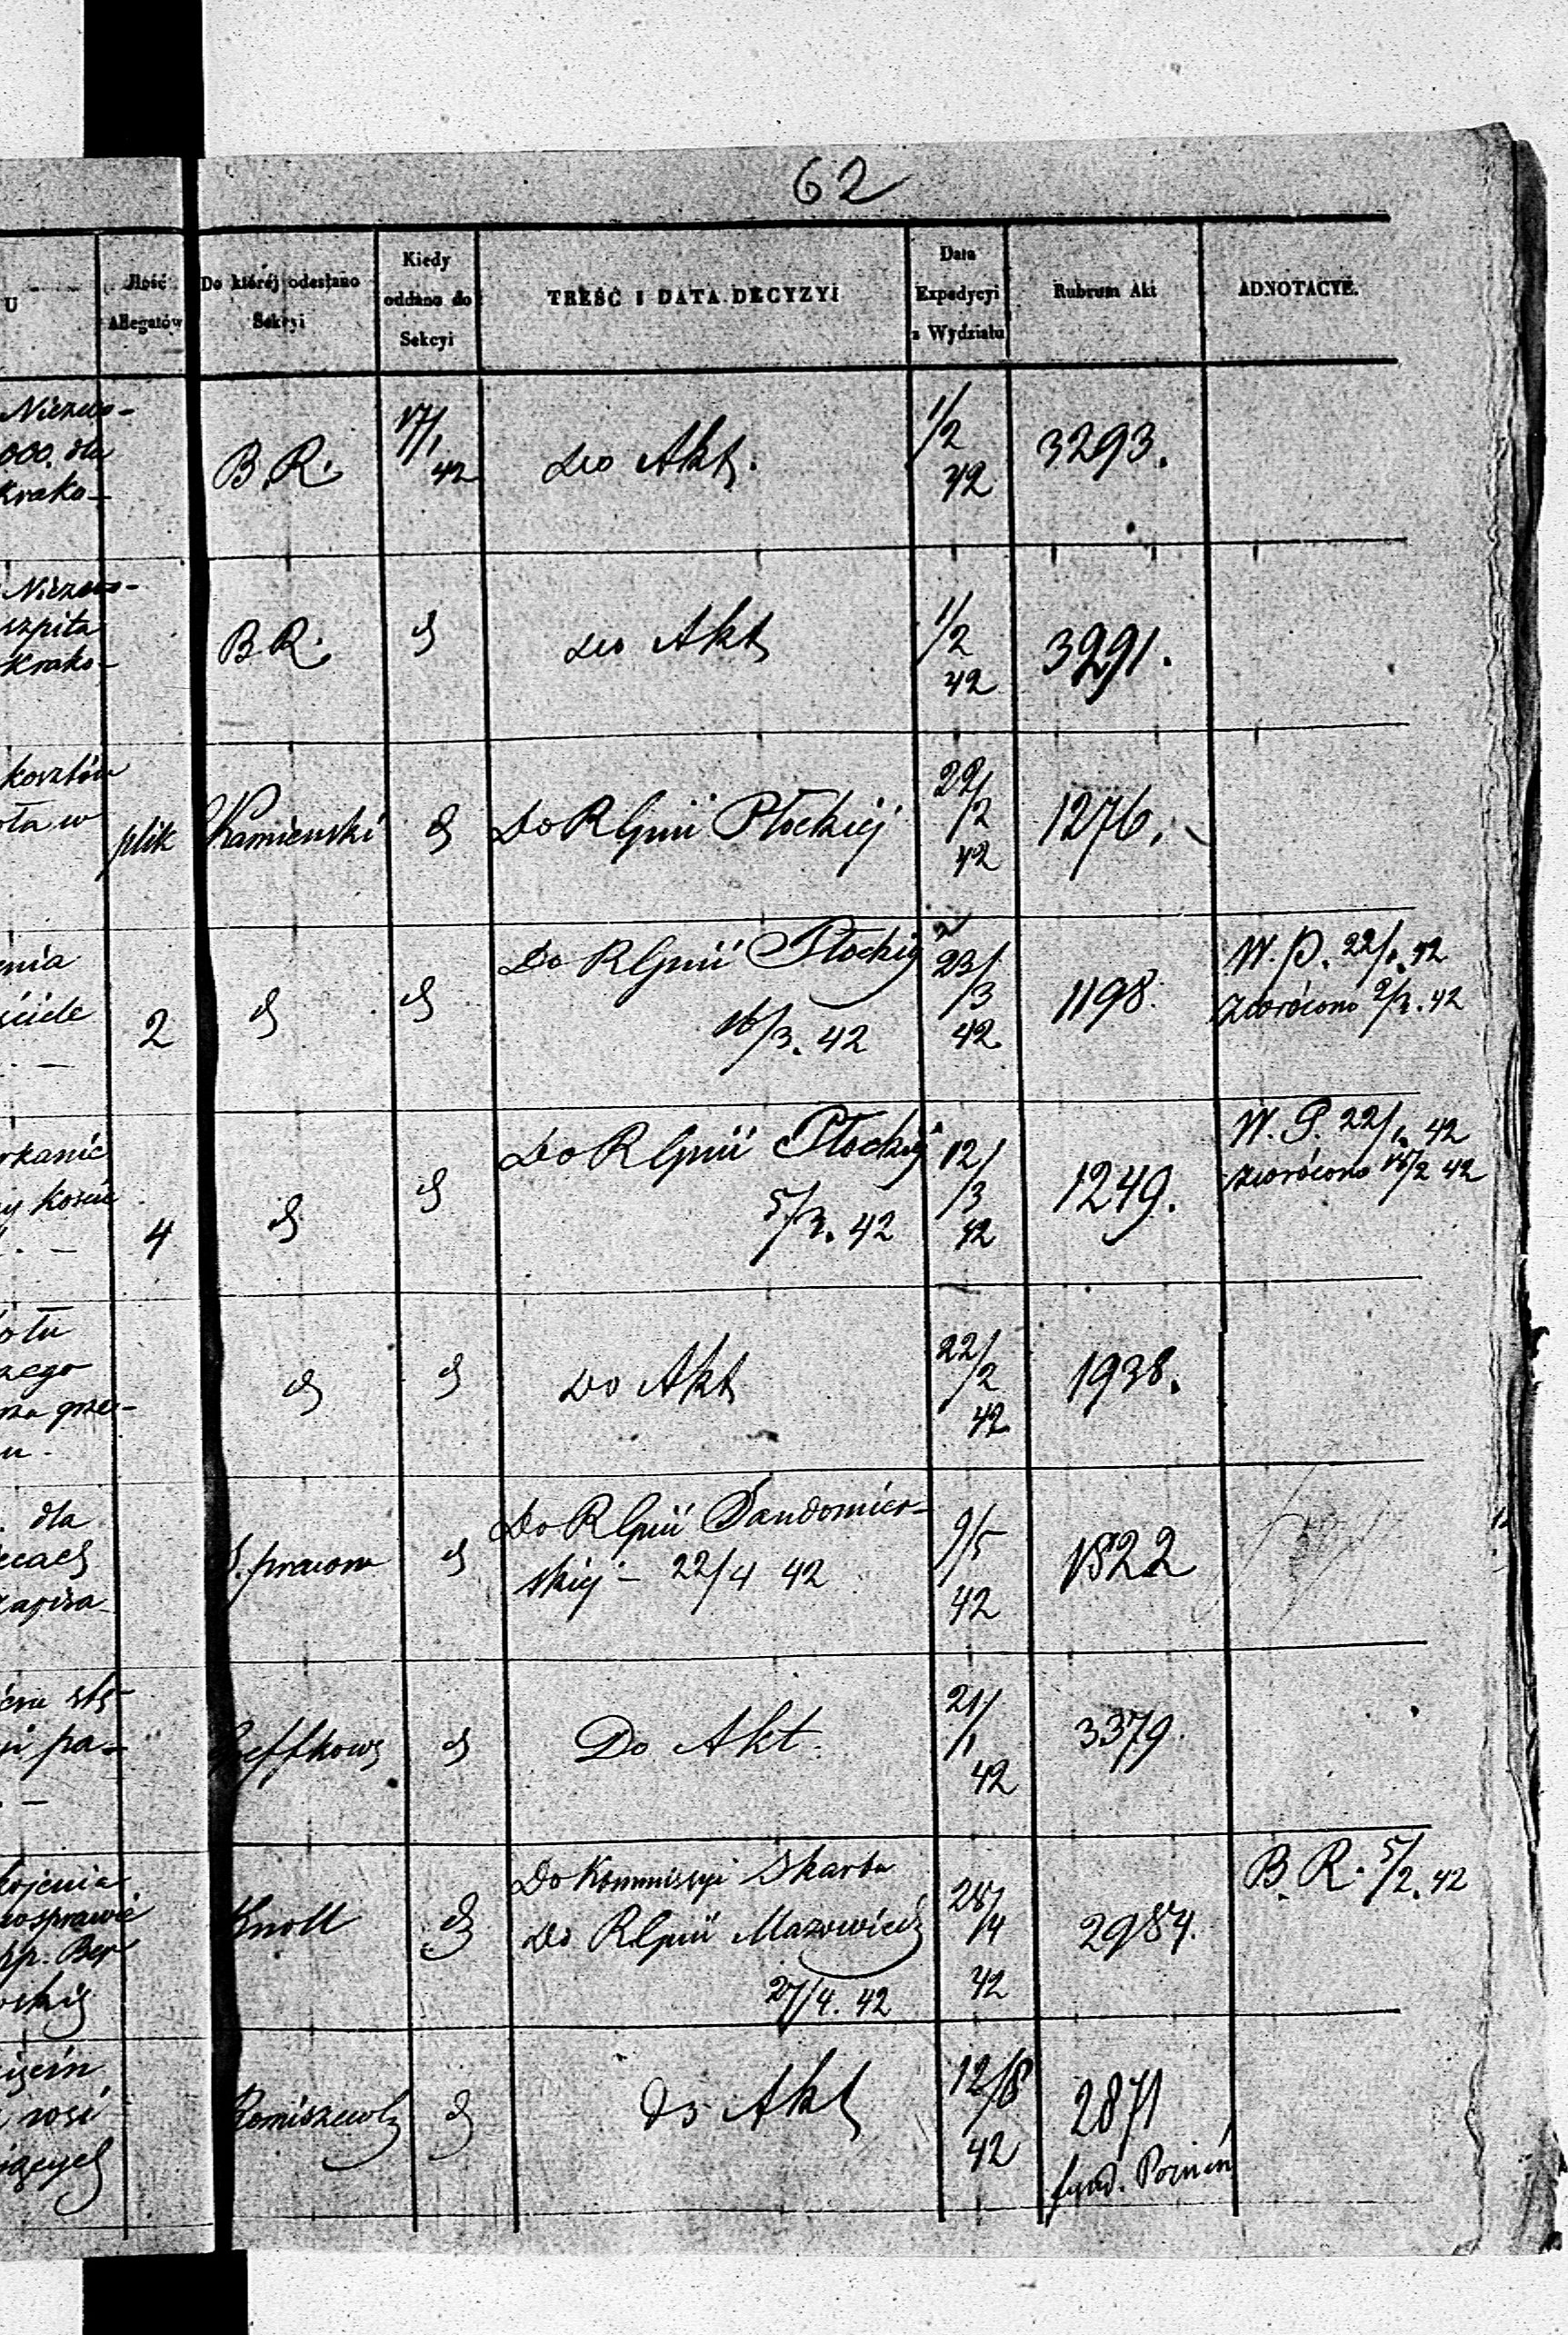 62
U
Ilość Allegatów
Do któréj odesłano Sekcyi
Kiedy oddano do Sekcyi
TREŚĆ I DATA DECYZYI
Data Expedycyi z Wydziału
Rubrum Akt
ADNOTACYE.
000. dla
Krako-
B.R.
17/1 42
do Akt.
1/2 42
3293.
szpita
Krako-
B.R.
do Akt
1/2 42
3291.
kosztów
plik
Kamienski
Do R Gnii Płockiej
22/2 42
1276.
enia
ściele
2
Do R Gnii Płockiej
16/3. 42
23/3 42
1198.
W. P. 22/1. 42
zwrócono 2/3. 42
rkanie
4
Do R Gnii Płockiej
5/3. 42
12/3 42
1249.
W. P. 22/1. 42
zwrócono 15/2 42
ołu
zego
u.
Do Akt
22/2 42
1938.
dla
Do R Gnii Sandomier-
skiej - 22/4 42
9/5 42
1822
pa-
Do Akt.
21/1 42
3379.
kojenia
pp. Ber
Knoll
Do Kommissyi Skarbu
Do R Gnii Mazowiec
27/4. 42
28/4 42
2984.
B. R. 5/2. 42
Do Akt
12/8 42
2871
fund.